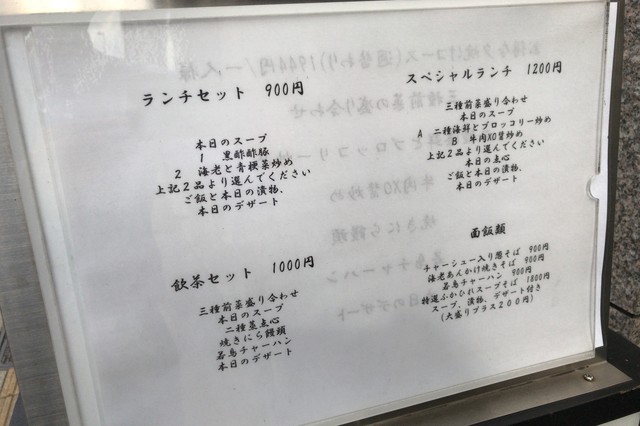 ランチセット 900円
本日のスープ
1 黒酢酢豚
2 海老と青梗菜炒め
上記2品より選んでください
ご飯と本日の漬物、
本日のデザート
スペシャルランチ 1200円
三種前菜盛り合わせ
本日のスープ
A 二種海鮮とブロッコリー炒め
B 牛肉XO醤炒め
上記2品より選んでください
本日の点心
ご飯と本日の漬物、
本日のデザート
飲茶セット 1000円
三種前菜盛り合わせ
本日のスープ
二種蒸点心
焼きにら饅頭
若鳥チャーハン
本日のデザート
面飯類
チャーシュー入り葱そば 900円
海老あんかけ焼きそば 900円
若鳥チャーハン 900円
特選ふかひれスープそば 1800円
スープ、漬物、デザート付き
(大盛りプラス200円)